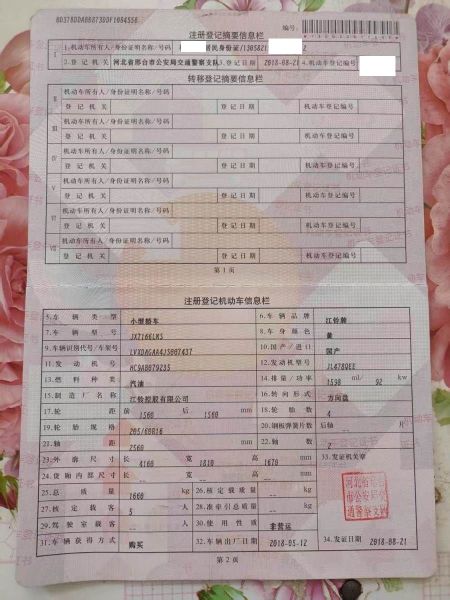 注册登记摘要信息栏
编号:
1.机动车所有人/身份证明名称/号码 居民身份证/1305821
2.登记机关 河北省邢台市公安局交通警察支队 3.登记日期 2018-08-21 4.机动车登记编号
转移登记摘要信息栏
机动车所有人/身份证明名称/号码
登记机关 登记日期 机动车登记编号
机动车所有人/身份证明名称/号码
登记机关 登记日期 机动车登记编号
机动车所有人/身份证明名称/号码
登记机关 登记日期 机动车登记编号
机动车所有人/身份证明名称/号码
登记机关 登记日期 机动车登记编号
机动车所有人/身份证明名称/号码
登记机关 登记日期 机动车登记编号
机动车所有人/身份证明名称/号码
登记机关 登记日期 机动车登记编号
第1页
注册登记机动车信息栏
5.车辆类型 小型轿车 6.车辆品牌 江铃牌
7.车辆型号 8.车身颜色 黄
9.车辆识别代号/车架号 10.国产/进口 国产
11.发动机号 12.发动机型号
13.燃料种类 汽油 14.排量/功率 1598 ml/ 92 kw
15.制造厂名称 江铃控股有限公司 16.转向形式 方向盘
17.轮距 前 1560 后 1560 mm 18.轮胎数 4
19.轮胎规格 205/60R16 20.钢板弹簧片数 后轴 -- 片
21.轴距 2560 mm 22.轴数 2
23.外廓尺寸 长 4160 宽 1810 高 1670 mm 33.发证机关章
24.货厢内部尺寸 长 -- 宽 -- 高 -- mm
25.总质量 1660 kg 26.核定载质量 -- kg
27.核定载客 5 人 28.准牵引总质量 -- kg
29.驾驶室载客 -- 人 30.使用性质 非营运
31.车辆获得方式 购买 32.车辆出厂日期 2018-05-12 34.发证日期 2018-08-21
第2页